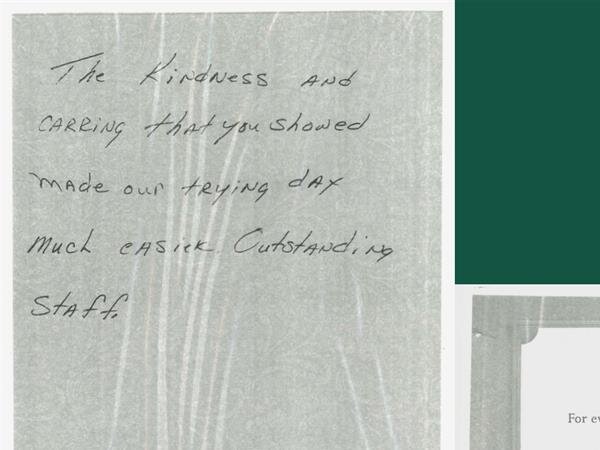 The Kindness and
CARRING that you showed
made our trying day
much easier. Outstanding
Staff.
For ev